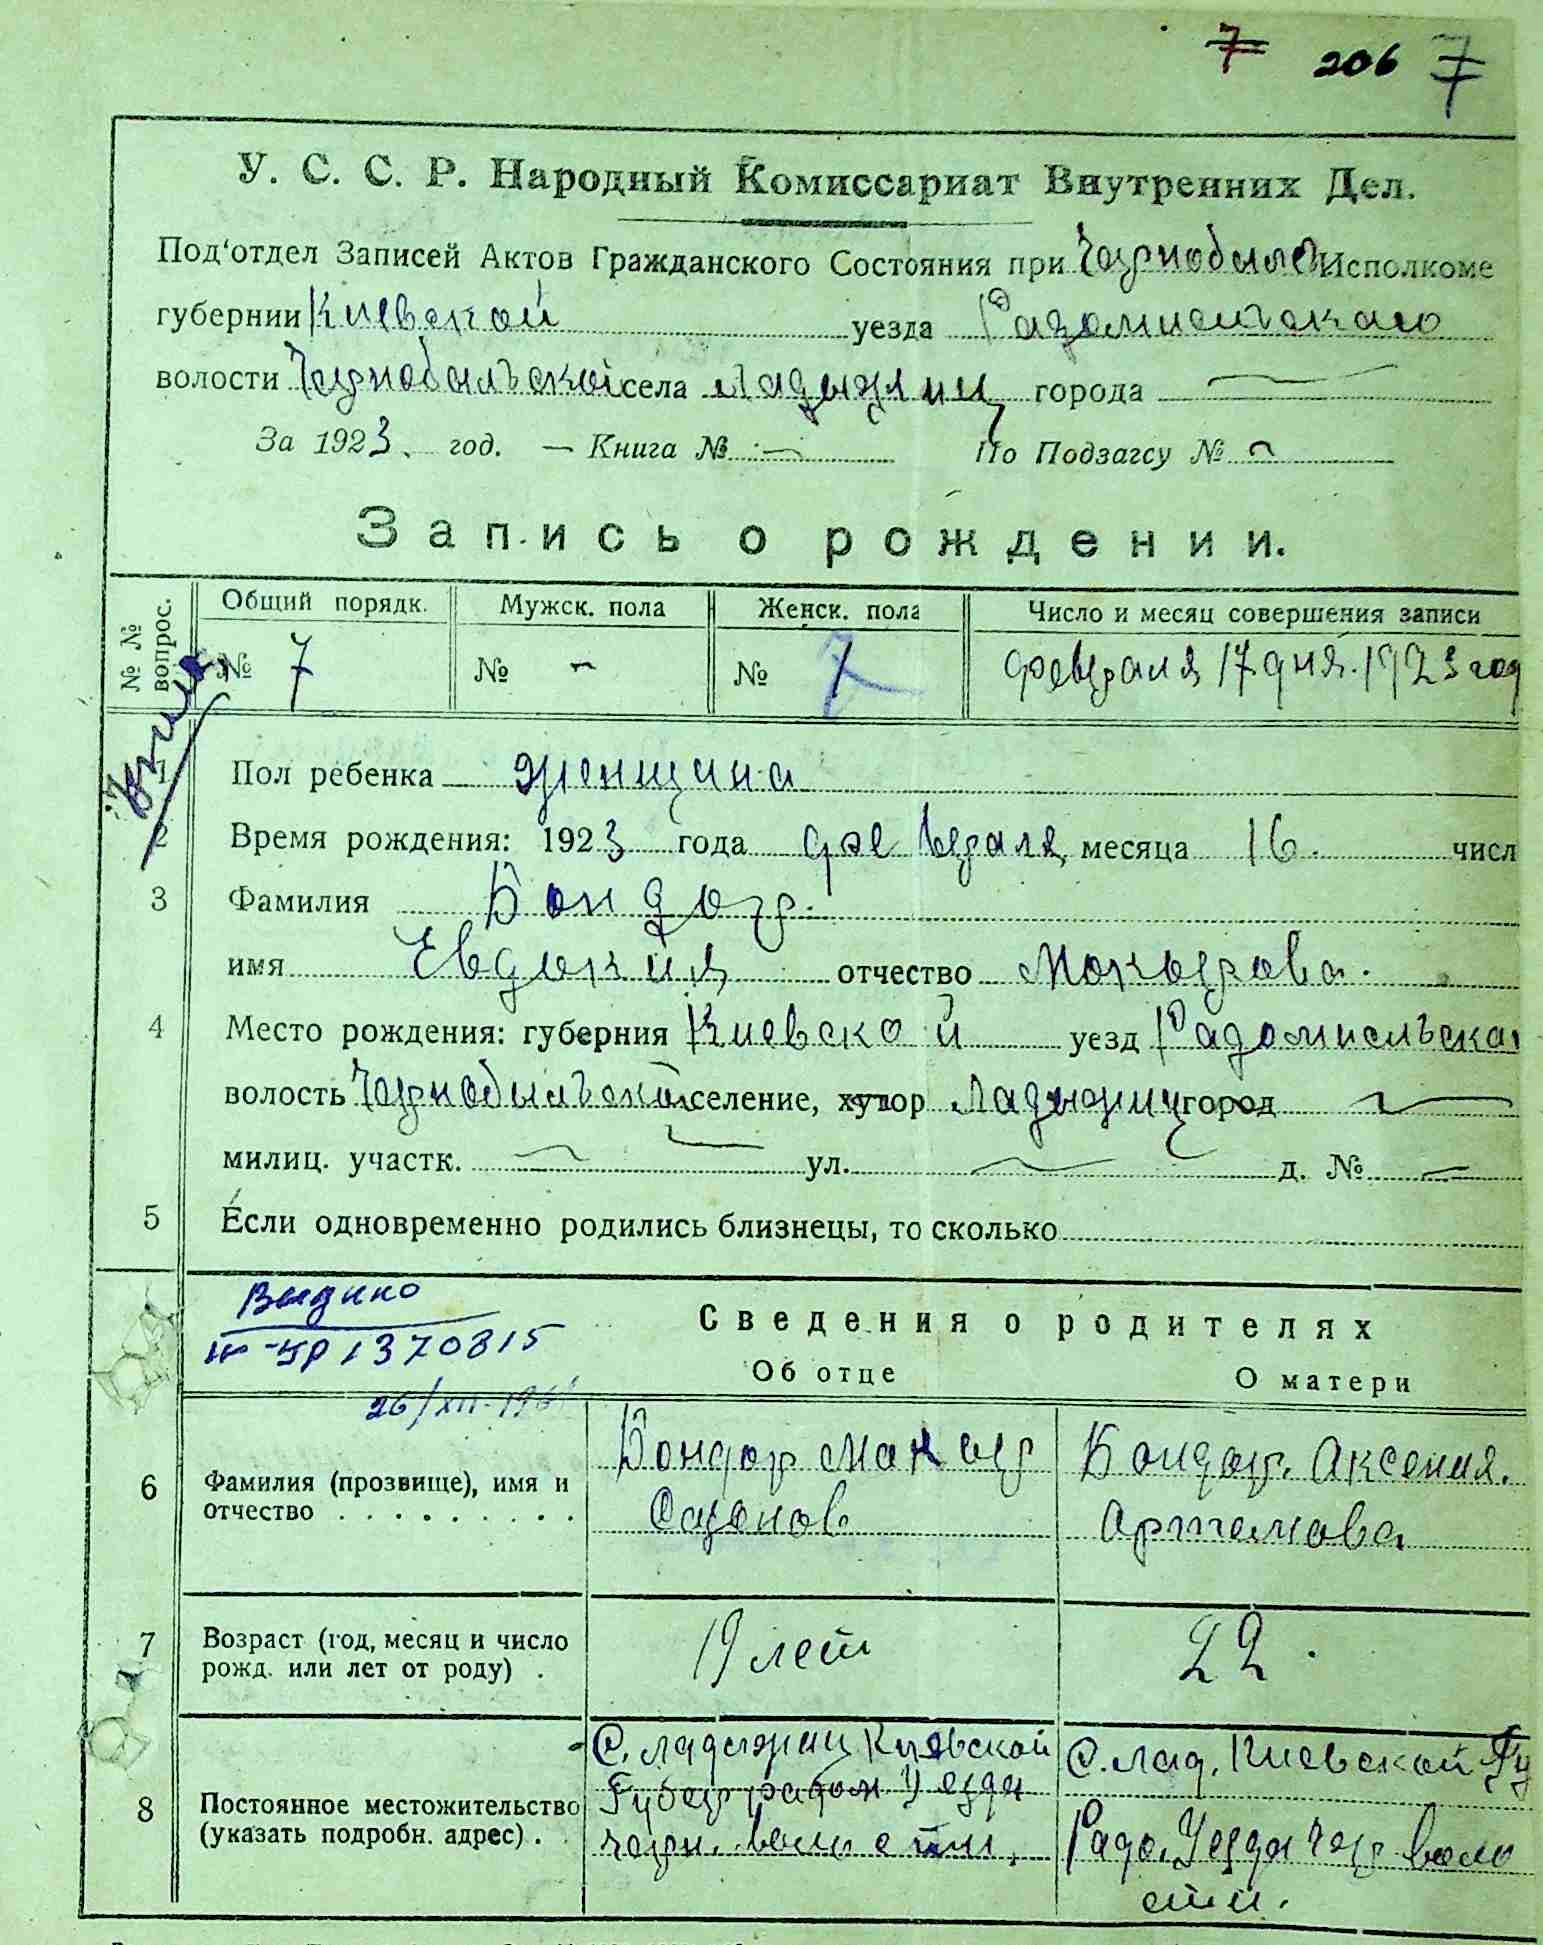 7 206 7
У. С. С. Р. Народный Комиссариат Внутренних Дел.
Под'отдел Записей Актов Гражданского Состояния при Чернобыл Исполкоме
губернии Киевской уезда Радомисльскаго
волости Чернобыльской села Ладыжич города —
За 1923. год. — Книга № — По Подзагсу № —
Запись о рождении.
№ № вопрос.
Общий порядк. Мужск. пола Женск. пола Число и месяц совершения записи
№ 7 № - № 7 февраля 17 дня. 1923 год
1 Пол ребенка женщина
2 Время рождения: 1923 года февраля месяца 16. числ
3 Фамилия Бондар.
имя Евдокия отчество Макарова.
4 Место рождения: губерния Киевской уезд Радомисльска
волость Чернобыльской селение, хутор Ладыжич город —
милиц. участк. — ул. — д. № —
5 Если одновременно родились близнецы, то сколько
Выдано
1370815
26/XII-196
Сведения о родителях
Об отце О матери
6 Фамилия (прозвище), имя и отчество . . . . . . . . .
Бондар Макар
Сазонов
Бондар. Аксения.
Артемова
7 Возраст (год, месяц и число рожд. или лет от роду) .
19 лет
22.
8 Постоянное местожительство (указать подробн. адрес) .
С. Ладыжич Киевской
Губер радом Уезда
черн. волости.
С. Лад. Киевской Гу
Радо. Уезда Чер воло
сти.